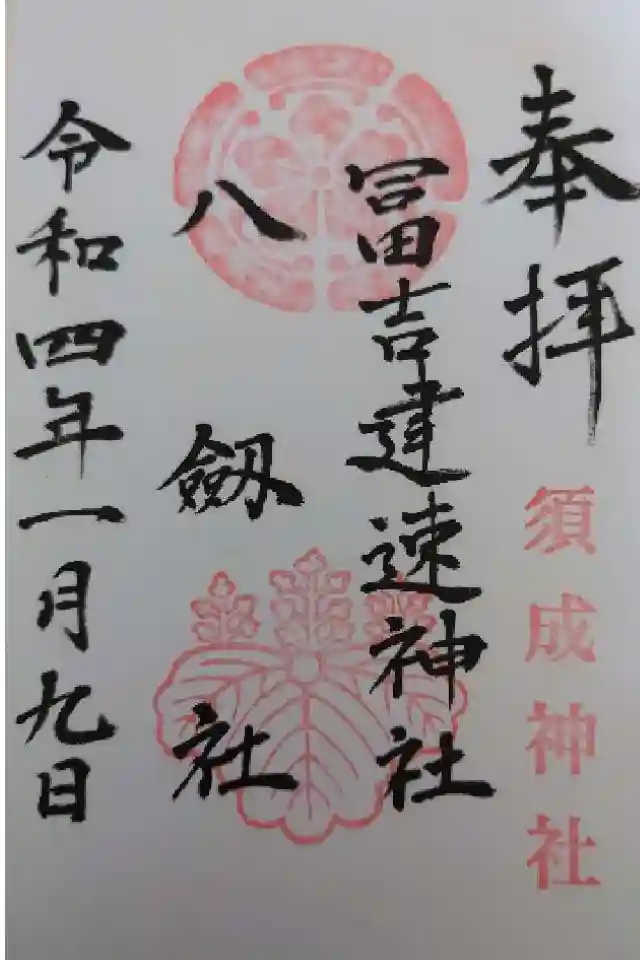 奉拝
須成神社
冨吉建速神社
八劔社
令和四年一月九日